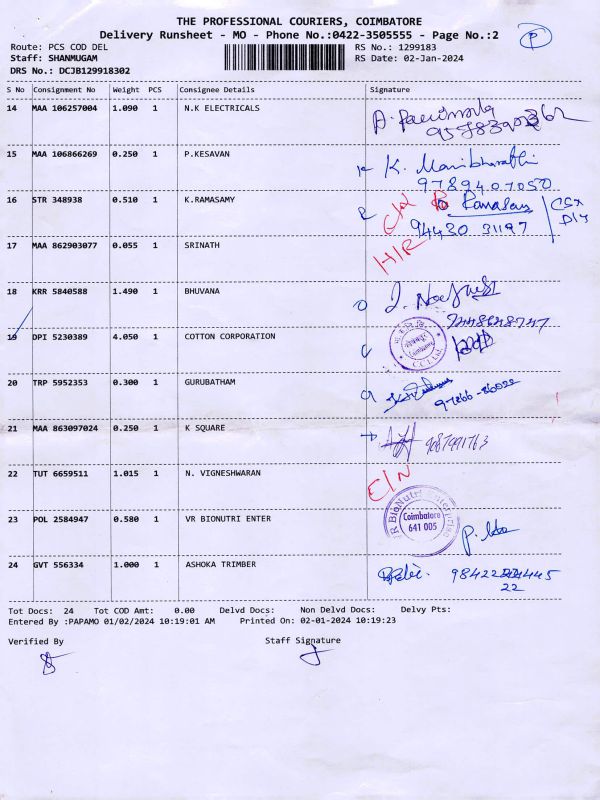 THE PROFESSIONAL COURIERS, COIMBATORE
Delivery Runsheet - MO - Phone No.:0422-3505555 - Page No.:2
P
Route: PCS COD DEL
RS No.: 1299183
Staff: SHANMUGAM
RS Date: 02-Jan-2024
DRS No.: DCJB129918302
S No Consignment No Weight PCS Consignee Details Signature
14 MAA 106257004 1.090 1 N.K ELECTRICALS
15 MAA 106866269 0.250 1 P.KESAVAN K. Manibharathi
9789407050
16 STR 348938 0.510 1 K.RAMASAMY Ramasamy
94430 31197
17 MAA 862903077 0.055 1 SRINATH
18 KRR 5840588 1.490 1 BHUVANA
19 DPI 5230389 4.050 1 COTTON CORPORATION
20 TRP 5952353 0.300 1 GURUBATHAM
21 MAA 863097024 0.250 1 K SQUARE 9087991763
22 TUT 6659511 1.015 1 N. VIGNESHWARAN
23 POL 2584947 0.580 1 VR BIONUTRI ENTER
Coimbatore
641 005
24 GVT 556334 1.000 1 ASHOKA TRIMBER
Tot Docs: 24 Tot COD Amt: 0.00 Delvd Docs: Non Delvd Docs: Delvy Pts:
Entered By :PAPAMO 01/02/2024 10:19:01 AM Printed On: 02-01-2024 10:19:23
Verified By Staff Signature